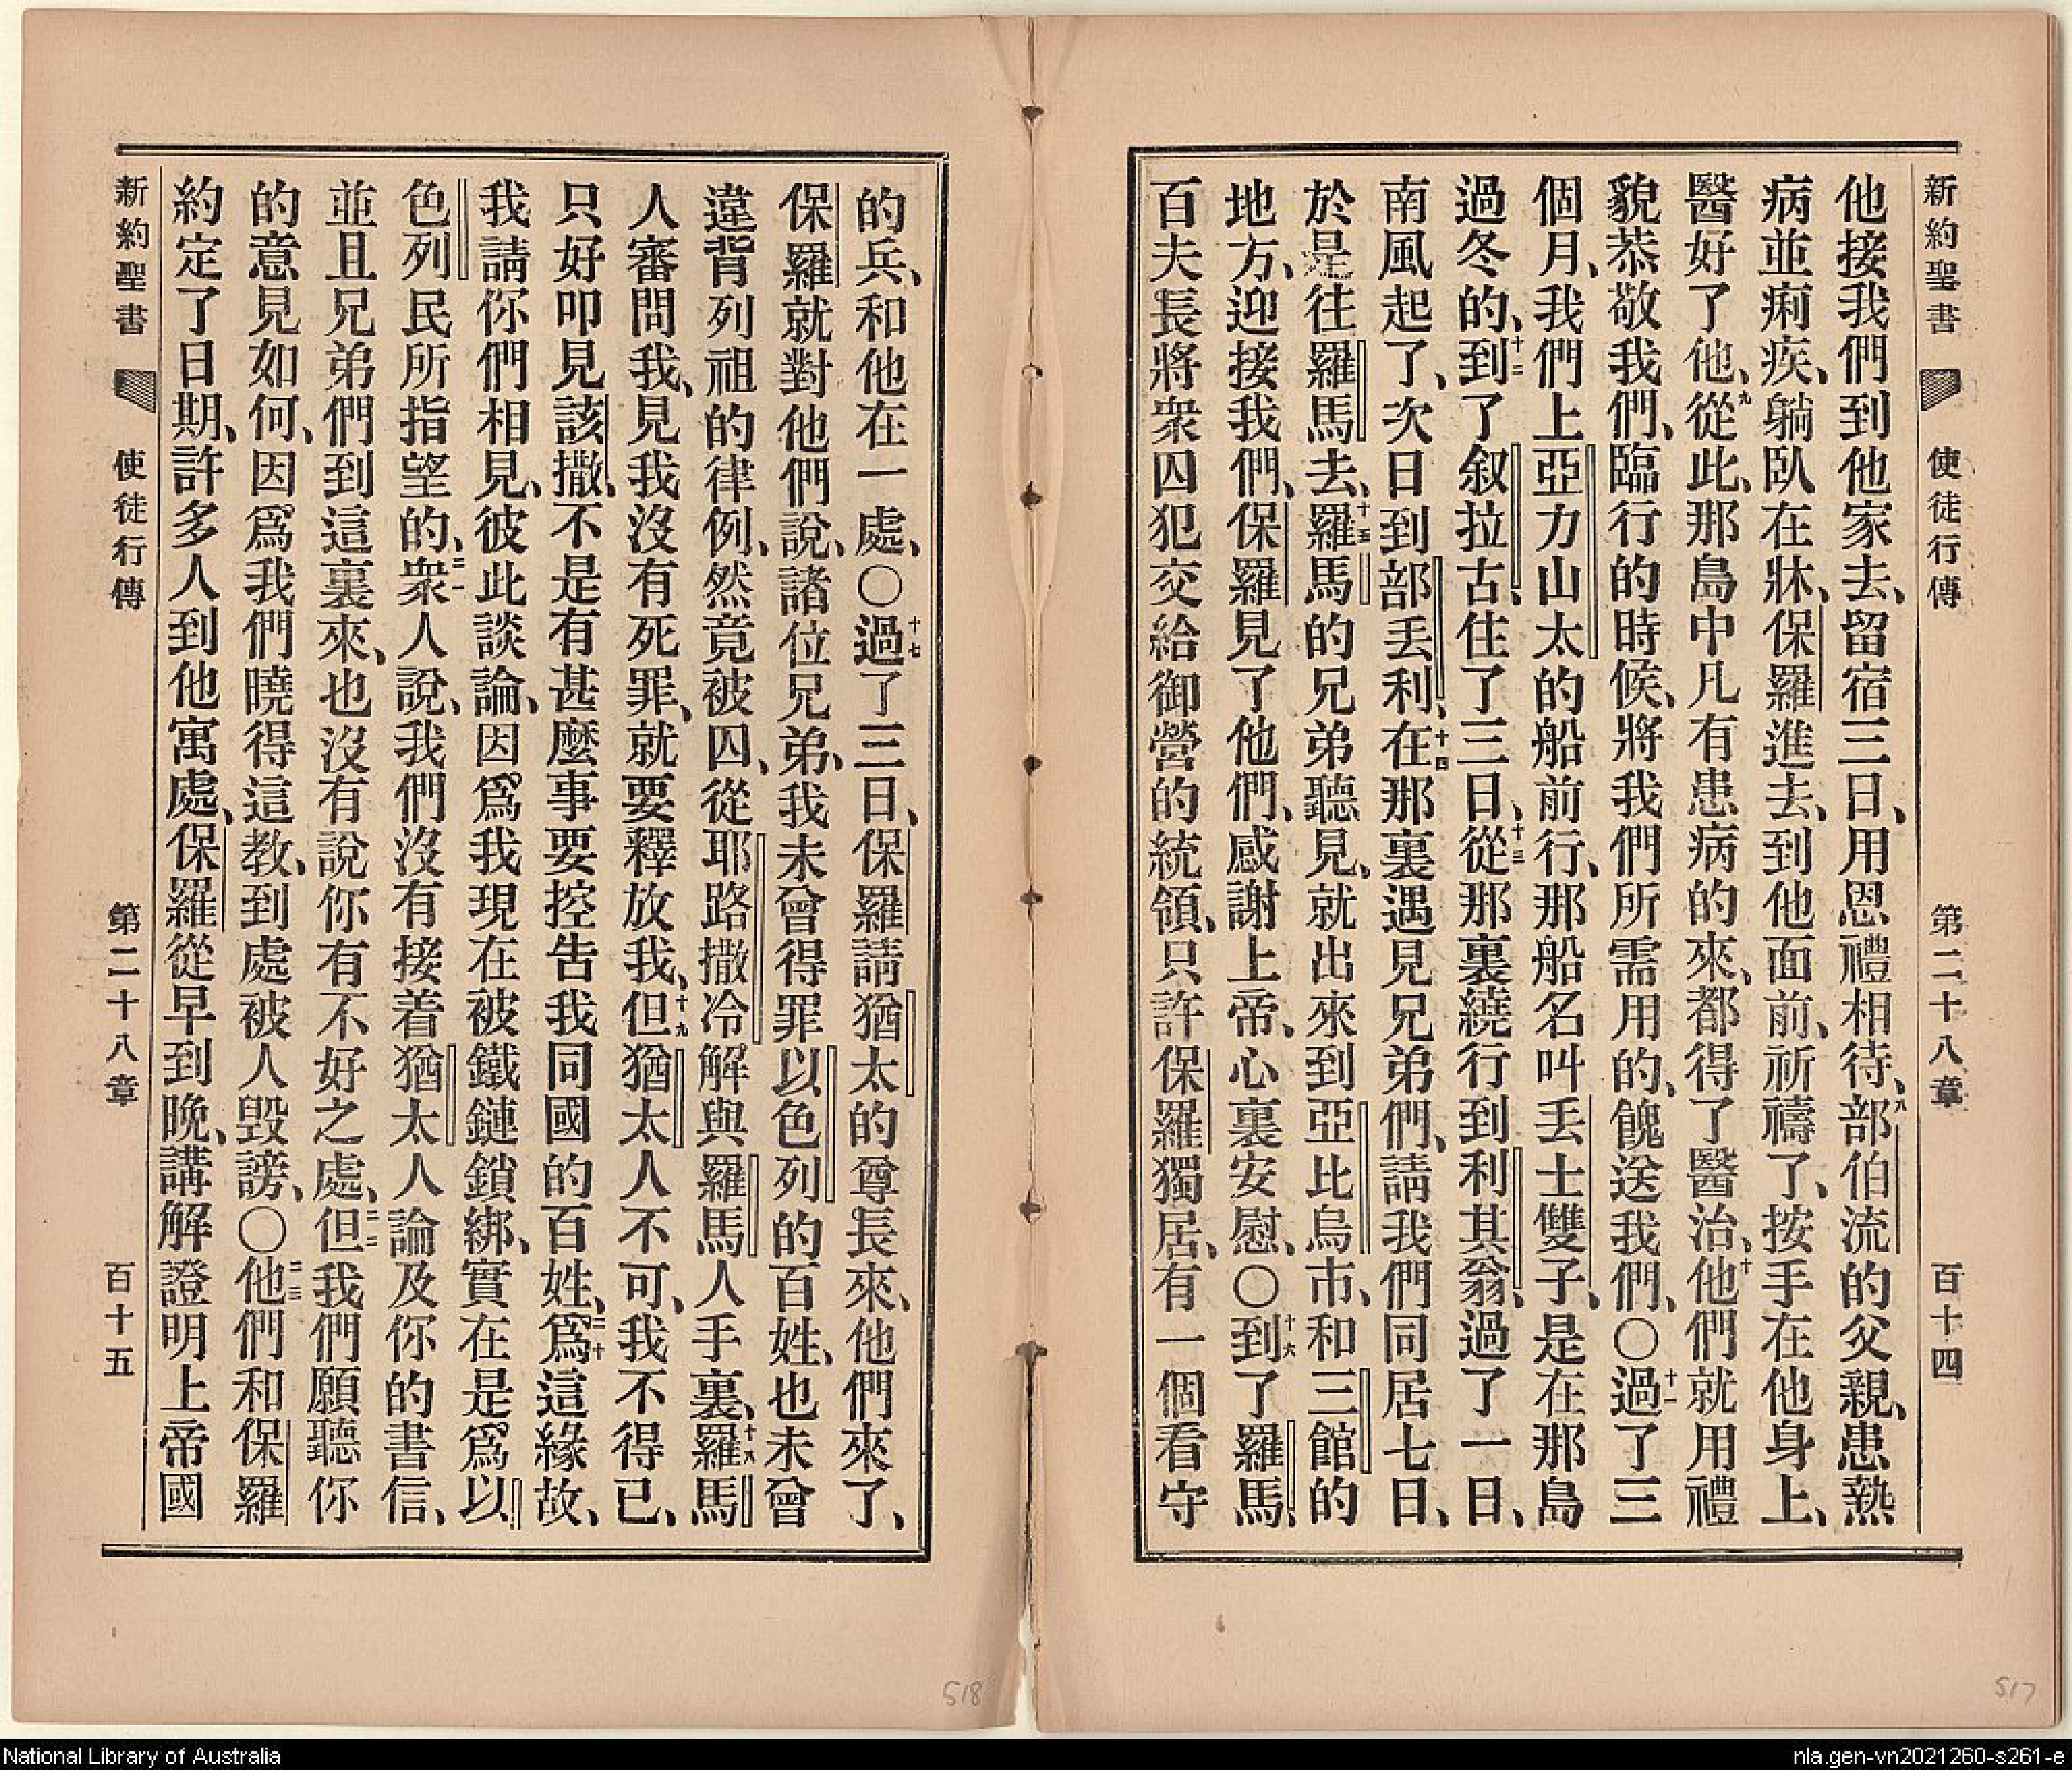 新約聖書 使徒行傳 第二十八章 百十四
他接我們到他家去、留宿三日、用恩禮相待、八部伯流的父親、患熱
病並痢疾、躺臥在牀、保羅進去、到他面前、祈禱了、按手在他身上、
醫好了他、九從此、那島中凡有患病的來、都得了醫治、十他們就用禮
貌恭敬我們、臨行的時候、將我們所需用的、餽送我們、〇十一過了三
個月、我們上亞力山太的船前行、那船名叫丢士雙子、是在那島
過冬的、十二到了叙拉古、住了三日、十三從那裏繞行到利其翁、過了一日、
南風起了、次日到部丢利、十四在那裏遇見兄弟們、請我們同居七日、
於是往羅馬去、十五羅馬的兄弟聽見、就出來到亞比烏市、和三館的
地方、迎接我們、保羅見了他們、感謝上帝、心裏安慰、〇十六到了羅馬、
百夫長將衆囚犯交給御營的統領、只許保羅獨居、有一個看守
517
的兵、和他在一處、〇十七過了三日、保羅請猶太的尊長來、他們來了、
保羅就對他們說、諸位兄弟、我未曾得罪以色列的百姓、也未曾
違背列祖的律例、然竟被囚、從耶路撒冷解與羅馬人手裏、十八羅馬
人審問我、見我沒有死罪、就要釋放我、十九但猶太人不可、我不得已、
只好叩見該撒、不是有甚麼事要控告我同國的百姓、二十爲這緣故、
我請你們相見、彼此談論、因爲我現在被鐵鏈鎖綁、實在是爲以
色列民所指望的、二一衆人說、我們沒有接着猶太人論及你的書信、
並且兄弟們到這裏來、也沒有說你有不好之處、二二但我們願聽你
的意見如何、因爲我們曉得這教、到處被人毀謗、〇二三他們和保羅
約定了日期、許多人到他寓處、保羅從早到晚、講解證明上帝國
新約聖書 使徒行傳 第二十八章 百十五
518
National Library of Australia
nla.gen-vn2021260-s261-e